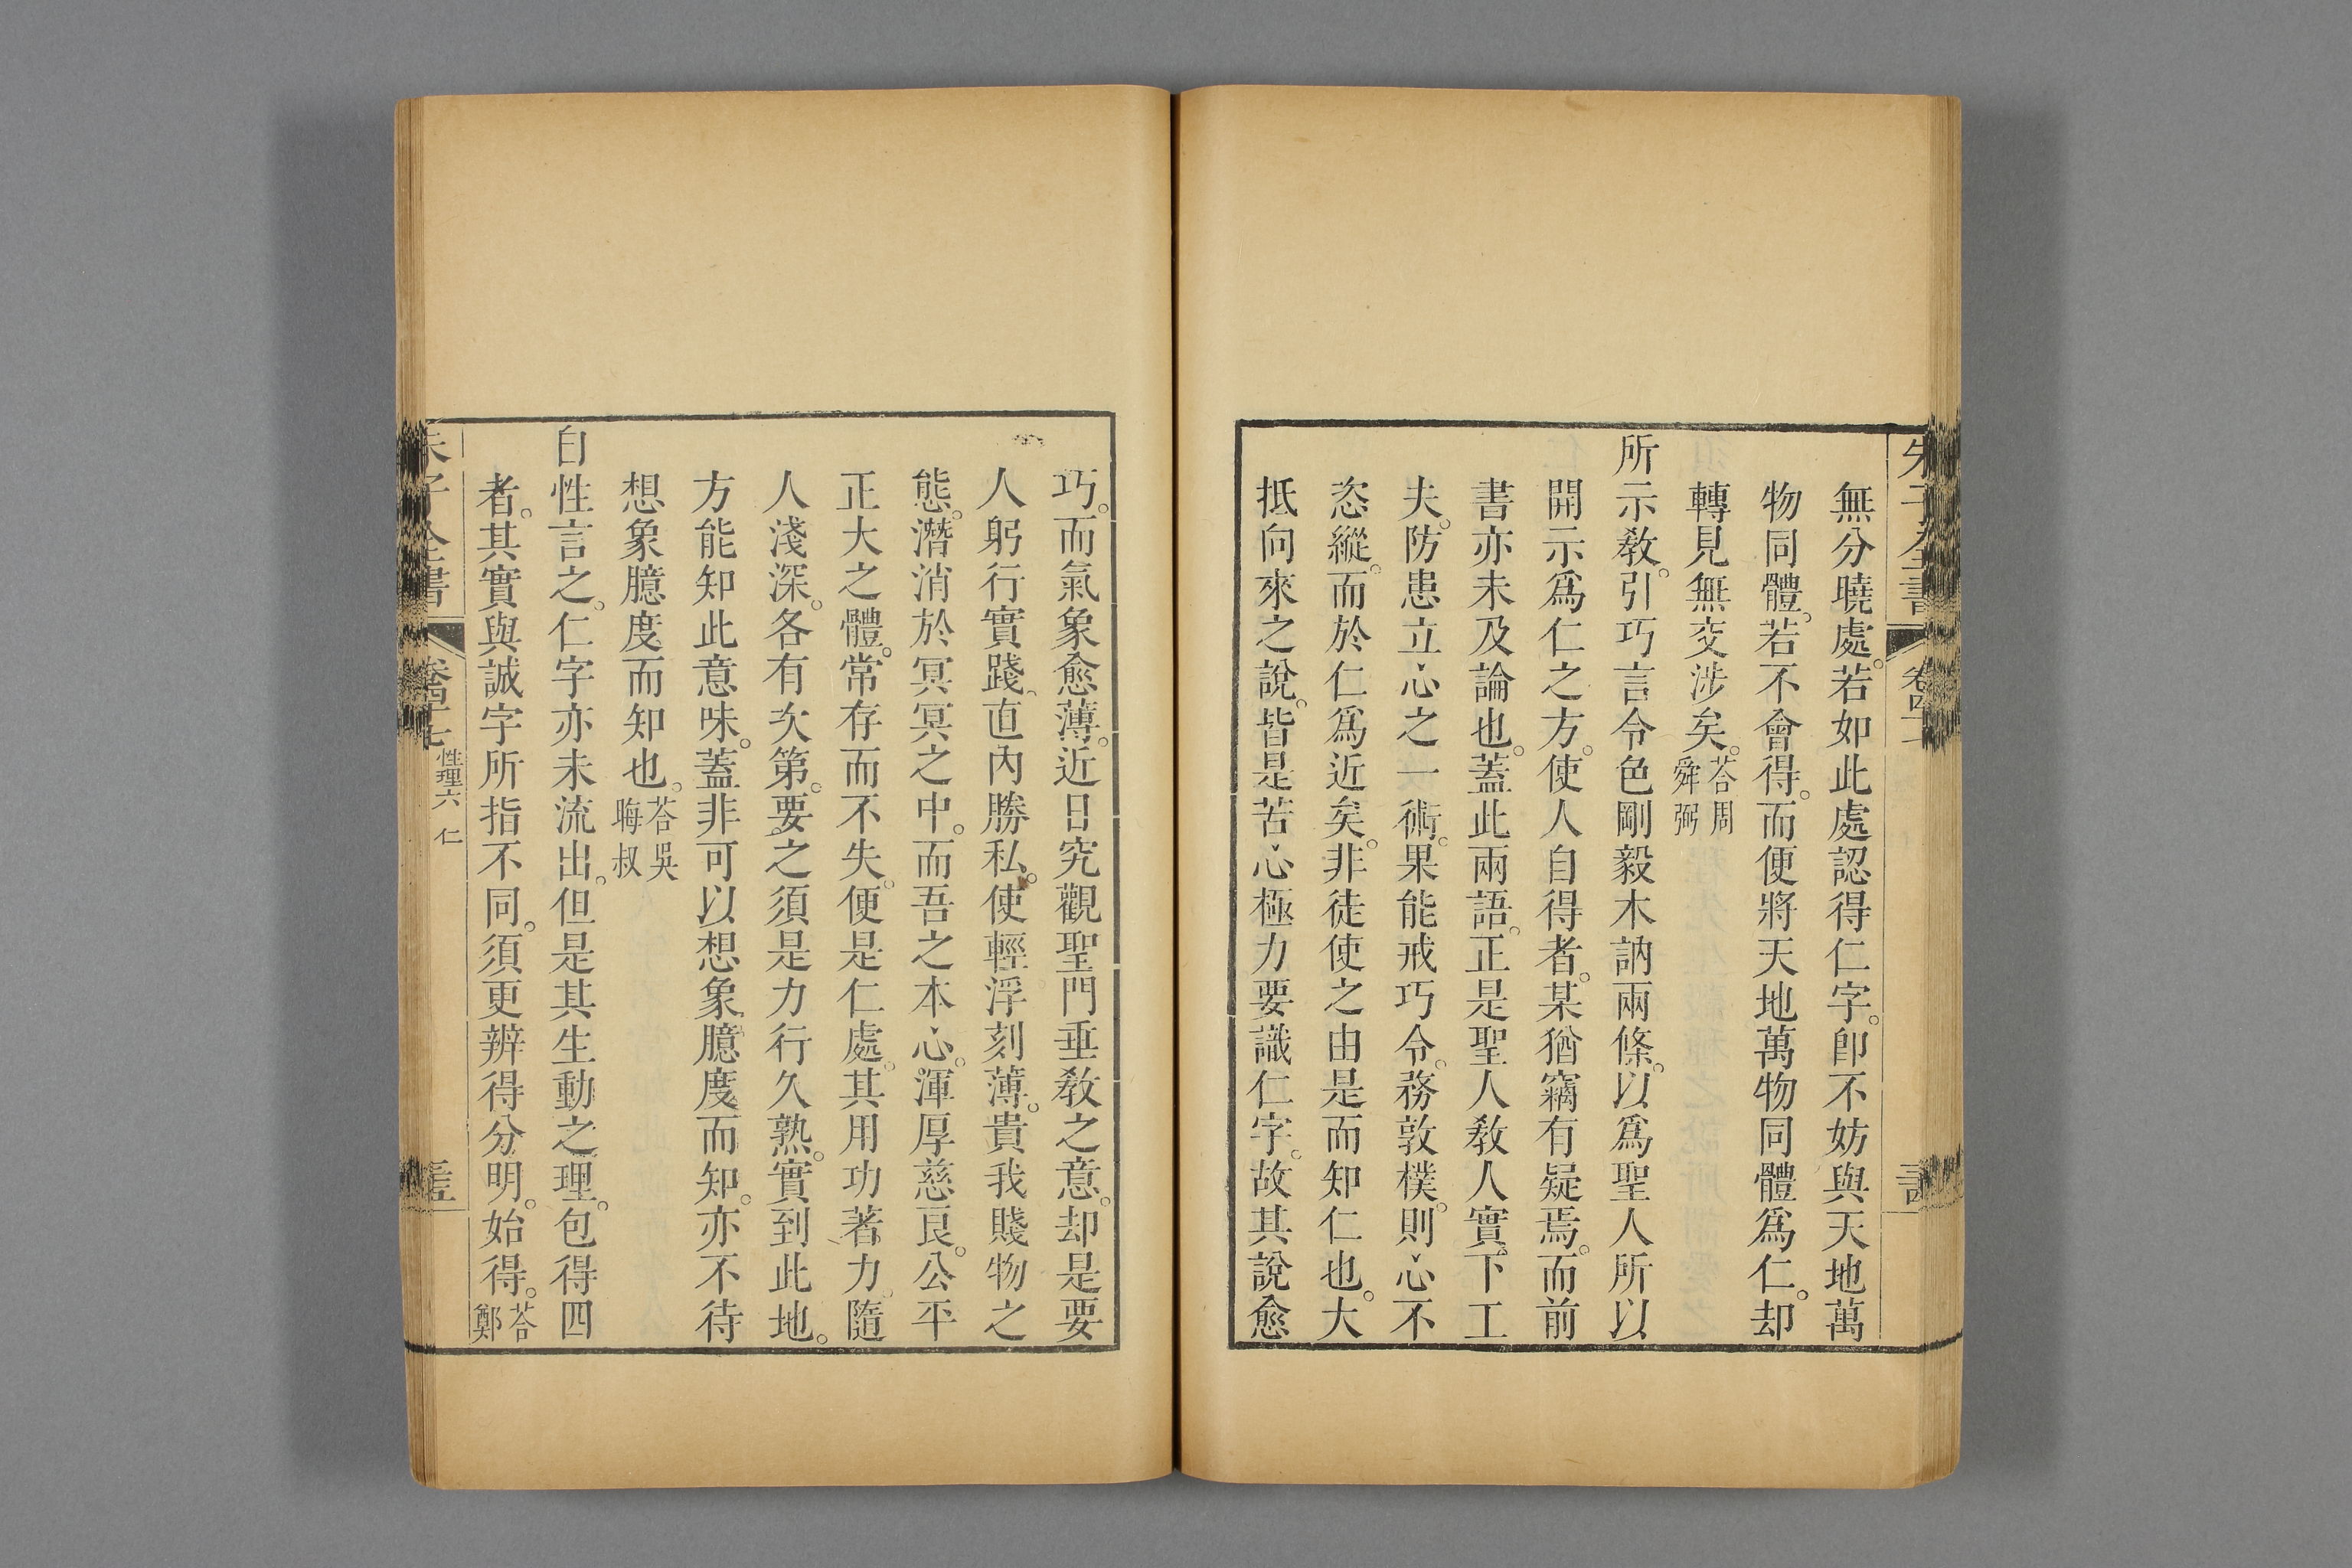 無分曉處。若如此處認得仁字。卽不妨與天地萬
物同體。若不會得。而便將天地萬物同體爲仁。却
轉見無交涉矣。荅周舜弼
所示敎。引巧言令色剛毅木訥兩條。以爲聖人所以
開示爲仁之方。使人自得者。某猶竊有疑焉。而前
書亦未及論也。蓋此兩語。正是聖人敎人實下工
夫。防患立心之一術。果能戒巧令。務敦樸。則心不
恣縱。而於仁爲近矣。非徒使之由是而知仁也。大
抵向來之說。皆是苦心極力要識仁字。故其說愈
巧。而氣象愈薄。近日究觀聖門垂敎之意。却是要
人躬行實踐。直內勝私。使輕浮刻薄。貴我賤物之
態。潛消於冥冥之中。而吾之本心。渾厚慈良。公平
正大之體。常存而不失。便是仁處。其用功著力。隨
人淺深。各有次第。要之須是力行久熟。實到此地。
方能知此意味。蓋非可以想象臆度而知。亦不待
想象臆度而知也。荅吳晦叔
自性言之。仁字亦未流出。但是其生動之理。包得四
者。其實與誠字所指不同。須更辨得分明。始得。荅鄭
朱子全書
性理六 仁